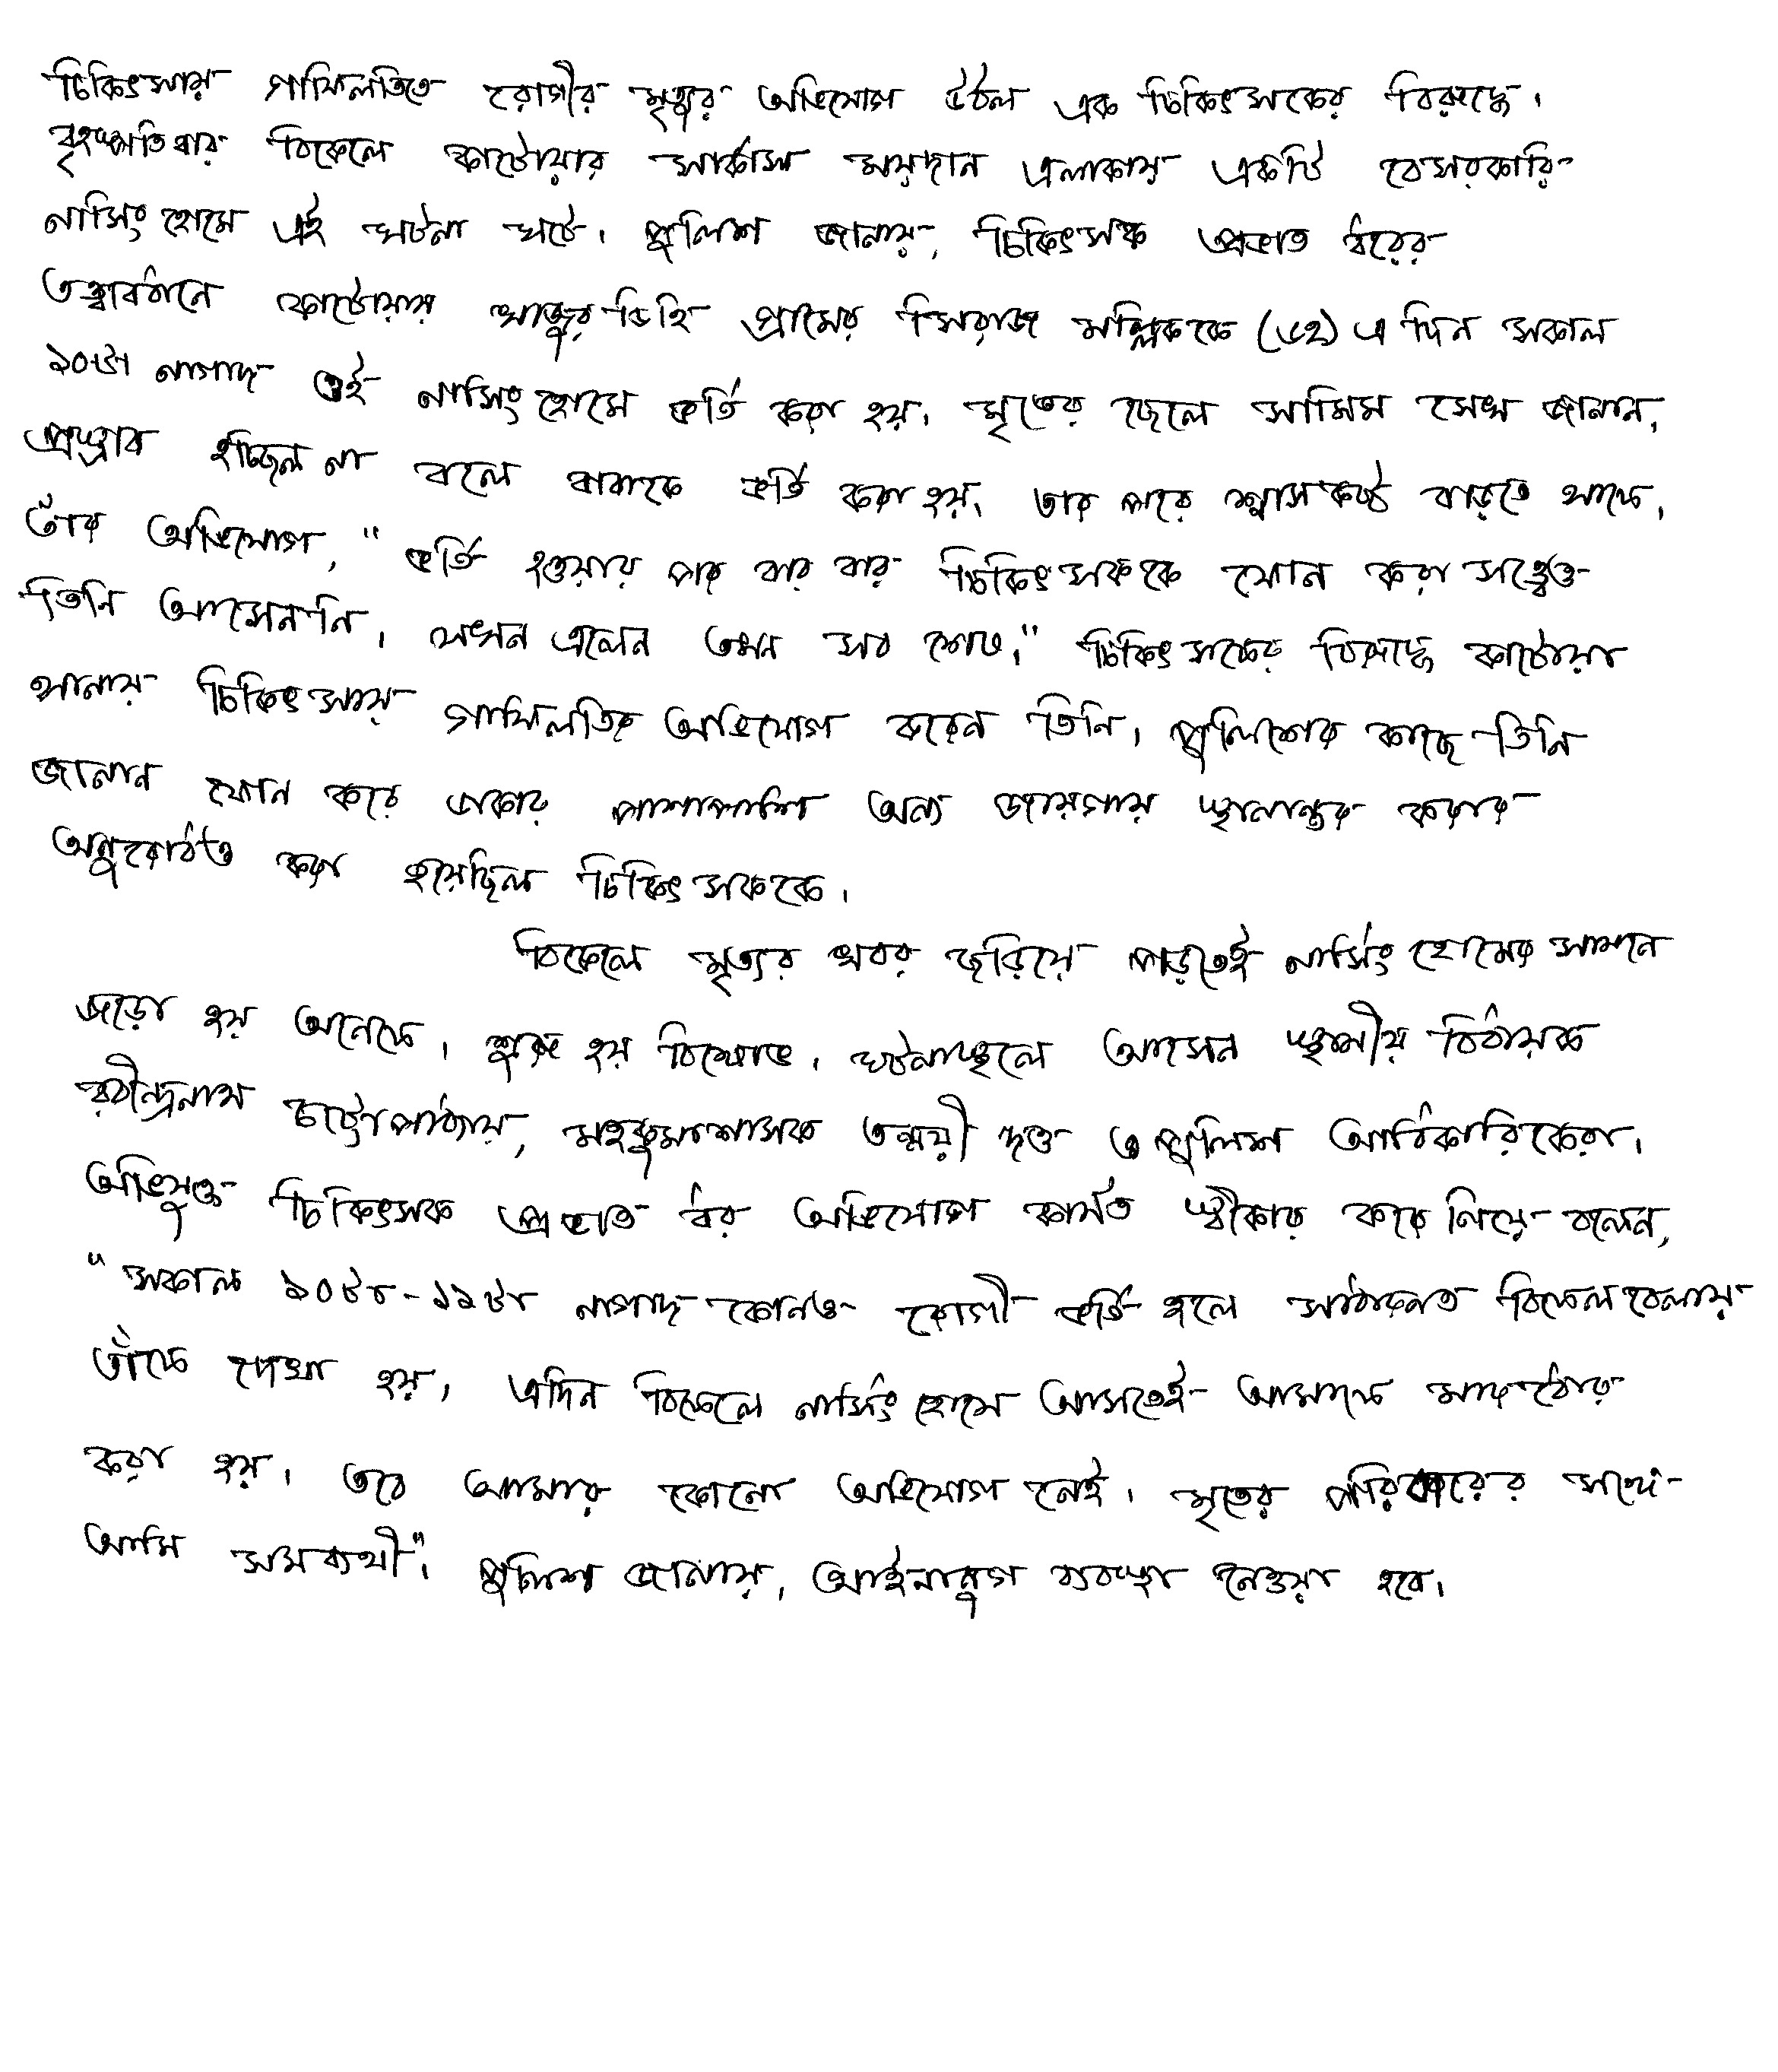 চিকিৎসায় গাফিলতিতে রোগীর মৃত্যুর অভিযোগ উঠল এক চিকিৎসকের বিরুদ্ধে।
বৃহস্পতিবার বিকেলে কাটোয়ার সার্কাস ময়দান এলাকায় একটি বেসরকারি
নার্সিংহোমে এই ঘটনা ঘটে। পুলিশ জানায়, চিকিৎসক প্রভাত ধরের
তত্ত্বাবধানে কাটোয়ায় খাজুরডিহি গ্রামের সিরাজ মল্লিককে (৬২) এ দিন সকাল
১০টা নাগাদ ওই নার্সিংহোমে ভর্তি করা হয়। মৃতের ছেলে সামিম সেখ জানান,
প্রস্রাব হচ্ছিল না বলে বাবাকে ভর্তি করা হয়। তার পরে শ্বাসকষ্ট বাড়তে থাকে।
তাঁর অভিযোগ, "ভর্তি হওয়ার পর বার বার চিকিৎসককে ফোন করা সত্ত্বেও
তিনি আসেননি। যখন এলেন তখন সব শেষ।" চিকিৎসকের বিরুদ্ধে কাটোয়া
থানায় চিকিৎসায় গাফিলতির অভিযোগ করেন তিনি। পুলিশের কাছে তিনি
জানান ফোন করে ডাকার পাশাপাশি অন্য জায়গায় স্থানান্তর করার
অনুরোধও করা হয়েছিল চিকিৎসককে।
বিকেলে মৃত্যুর খবর ছড়িয়ে পড়তেই নার্সিংহোমের সামনে
জড়ো হয় অনেকে। শুরু হয় বিক্ষোভ। ঘটনাস্থলে আসেন স্থানীয় বিধায়ক
রবীন্দ্রনাথ চট্টোপাধ্যায়, মহকুমাশাসক তন্ময়ী দত্ত ও পুলিশ আধিকারিকেরা।
অভিযুক্ত চিকিৎসক প্রভাত ধর অভিযোগ কার্যত স্বীকার করে নিয়ে বলেন,
"সকাল ১০টা-১১টা নাগাদ কোনও রোগী ভর্তি হলে সাধারনত বিকেলবেলায়
তাঁকে দেখা হয়। এদিন বিকেলে নার্সিংহোমে আসতেই আমাকে মারধোর
করা হয়। তবে আমার কোনো অভিযোগ নেই। মৃতের পরিবারের সঙ্গে
আমি সমব্যথী"। পুলিশ জানায়, আইনানুগ ব্যবস্থা নেওয়া হবে।